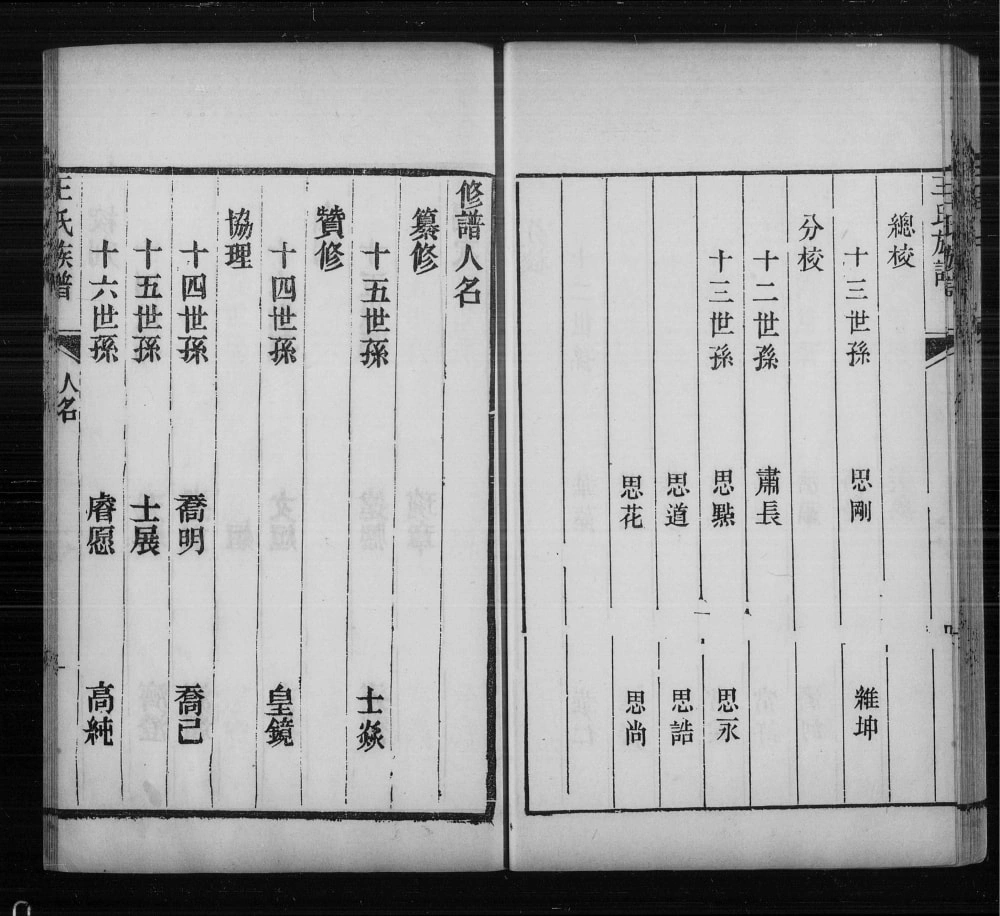 王氏族譜
總校
十三世孫 思剛 維坤
分校
十二世孫 肅長
十三世孫 思點 思永
思道 思誥
思花 思尚
修譜人名
纂修
十五世孫 士焱
贊修
十四世孫 皇鏡
協理
十四世孫 喬明 喬己
十五世孫 士展
十六世孫 睿愿 高純
王氏族譜 人名